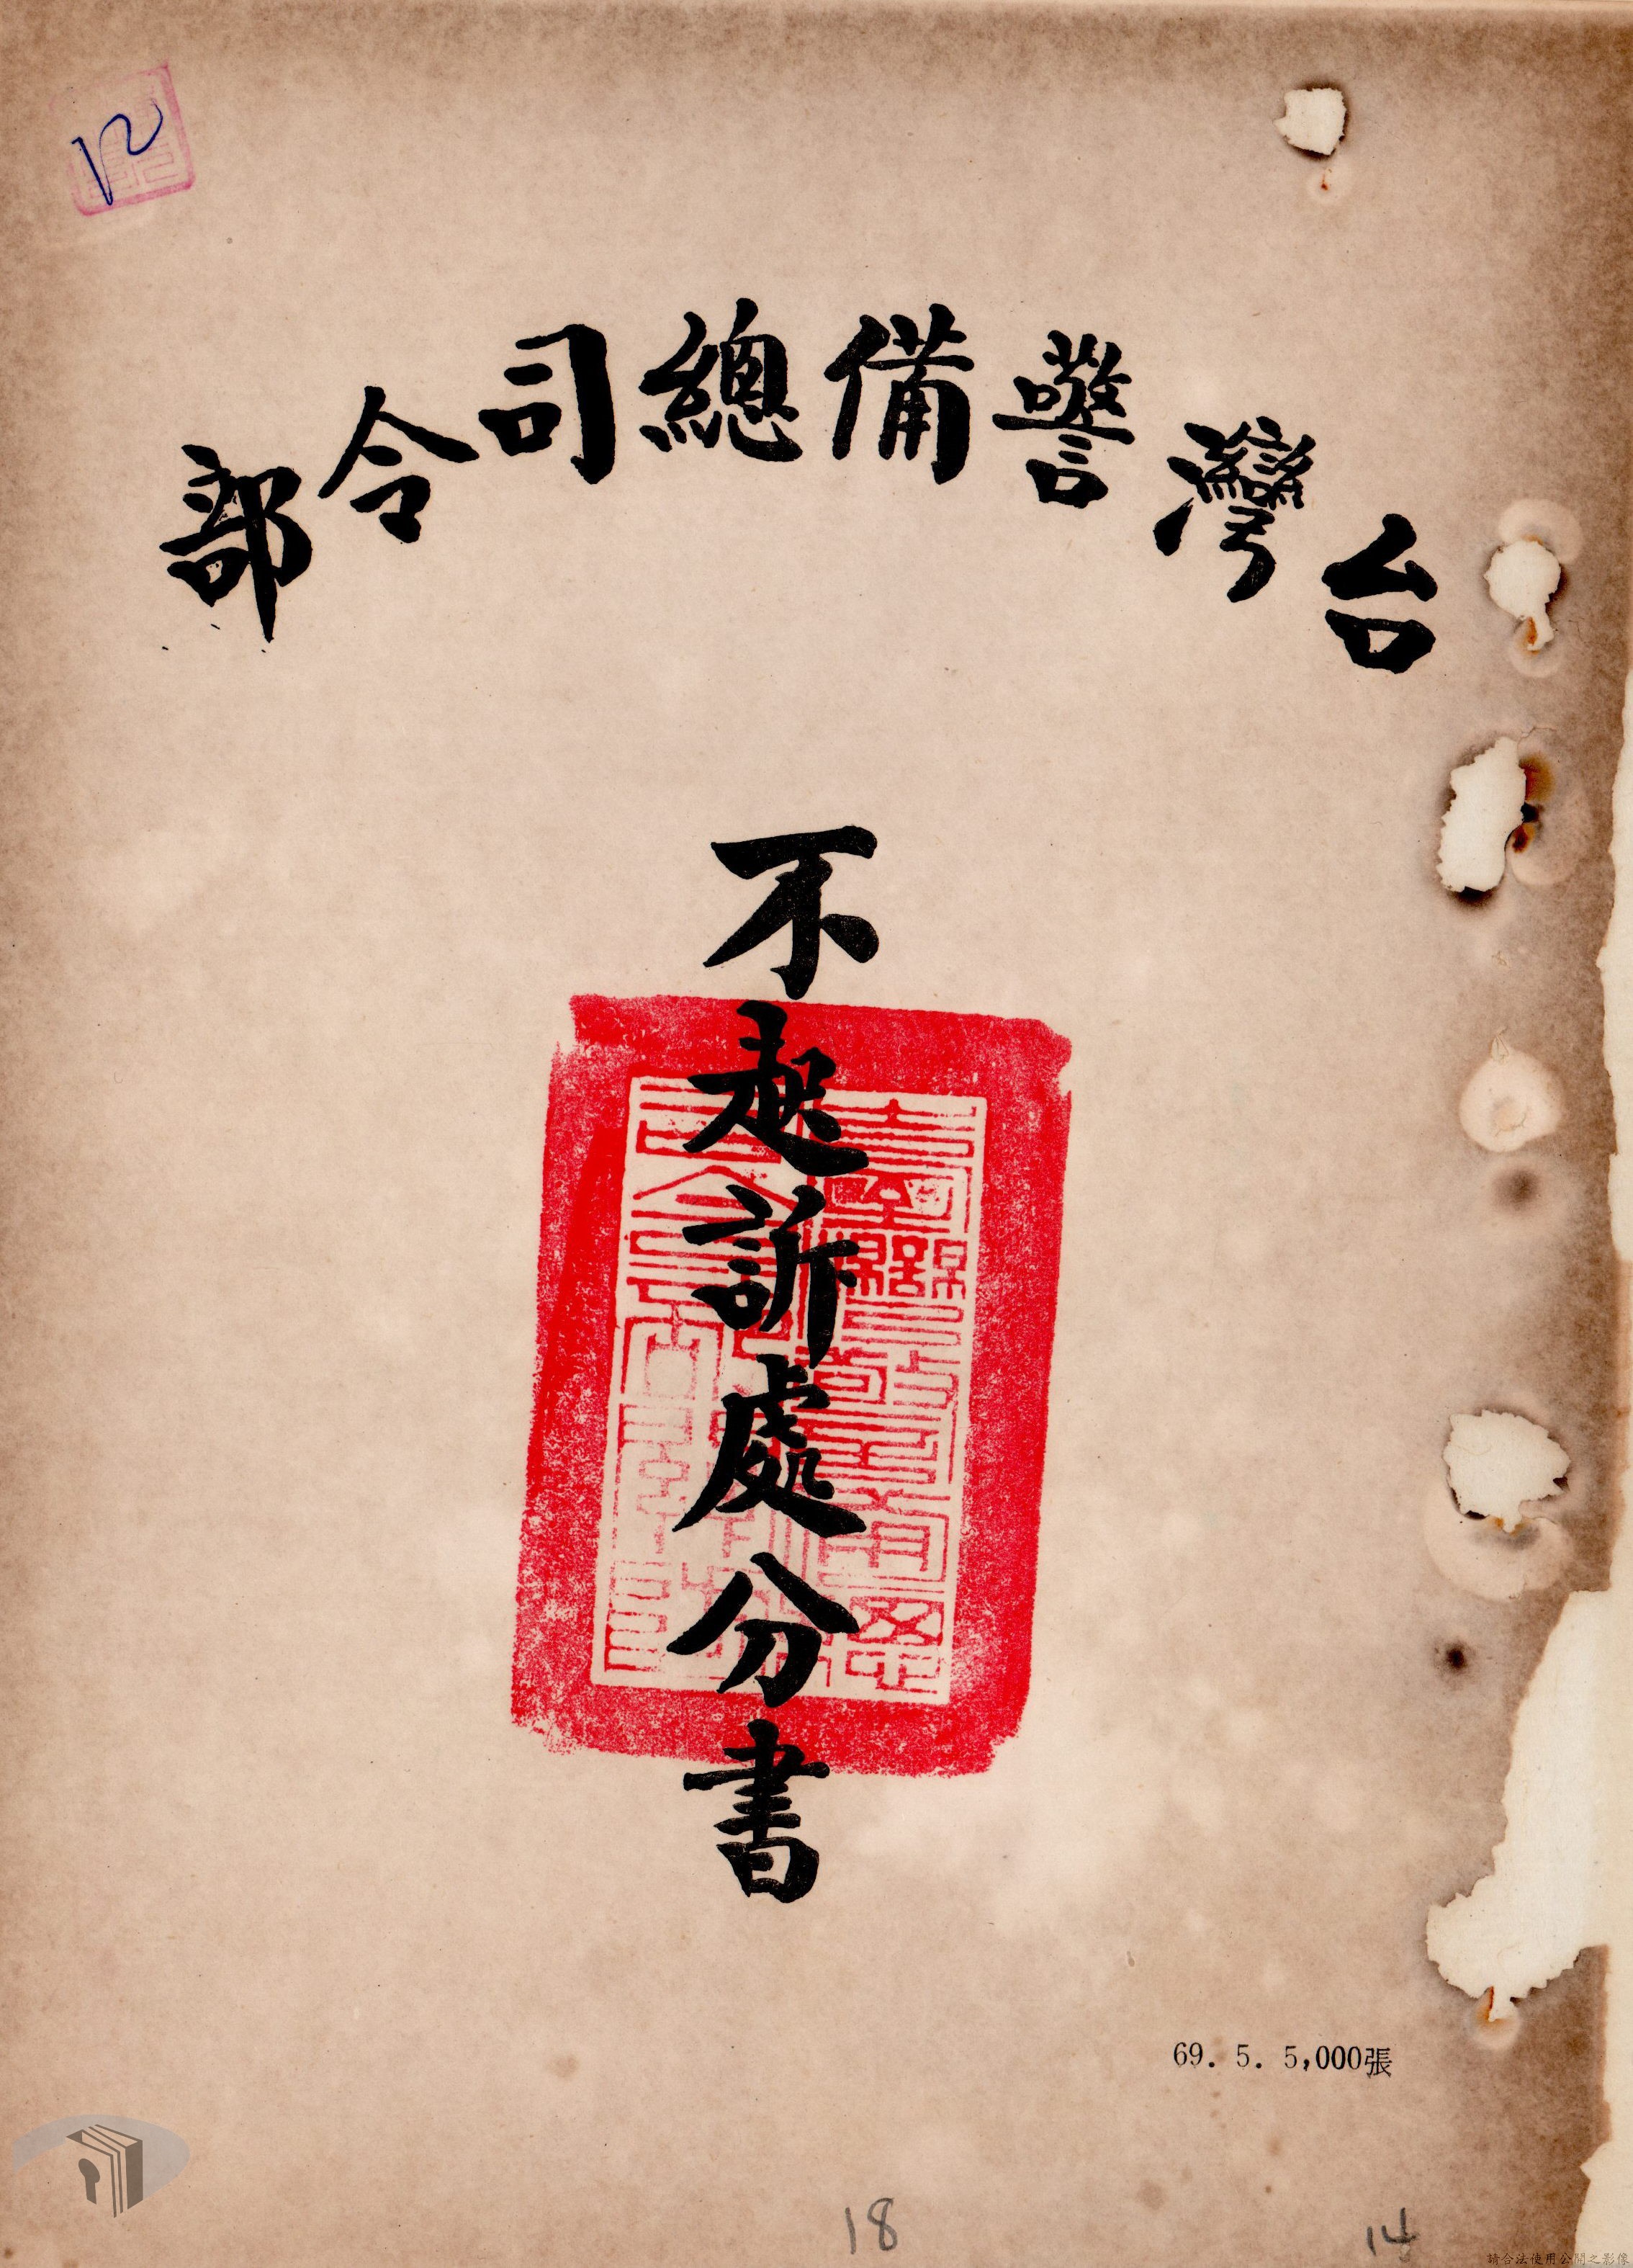 12
台灣警備總司令部
不起訴處分書
69. 5. 5,000張
18
14
請合法使用公開之影像